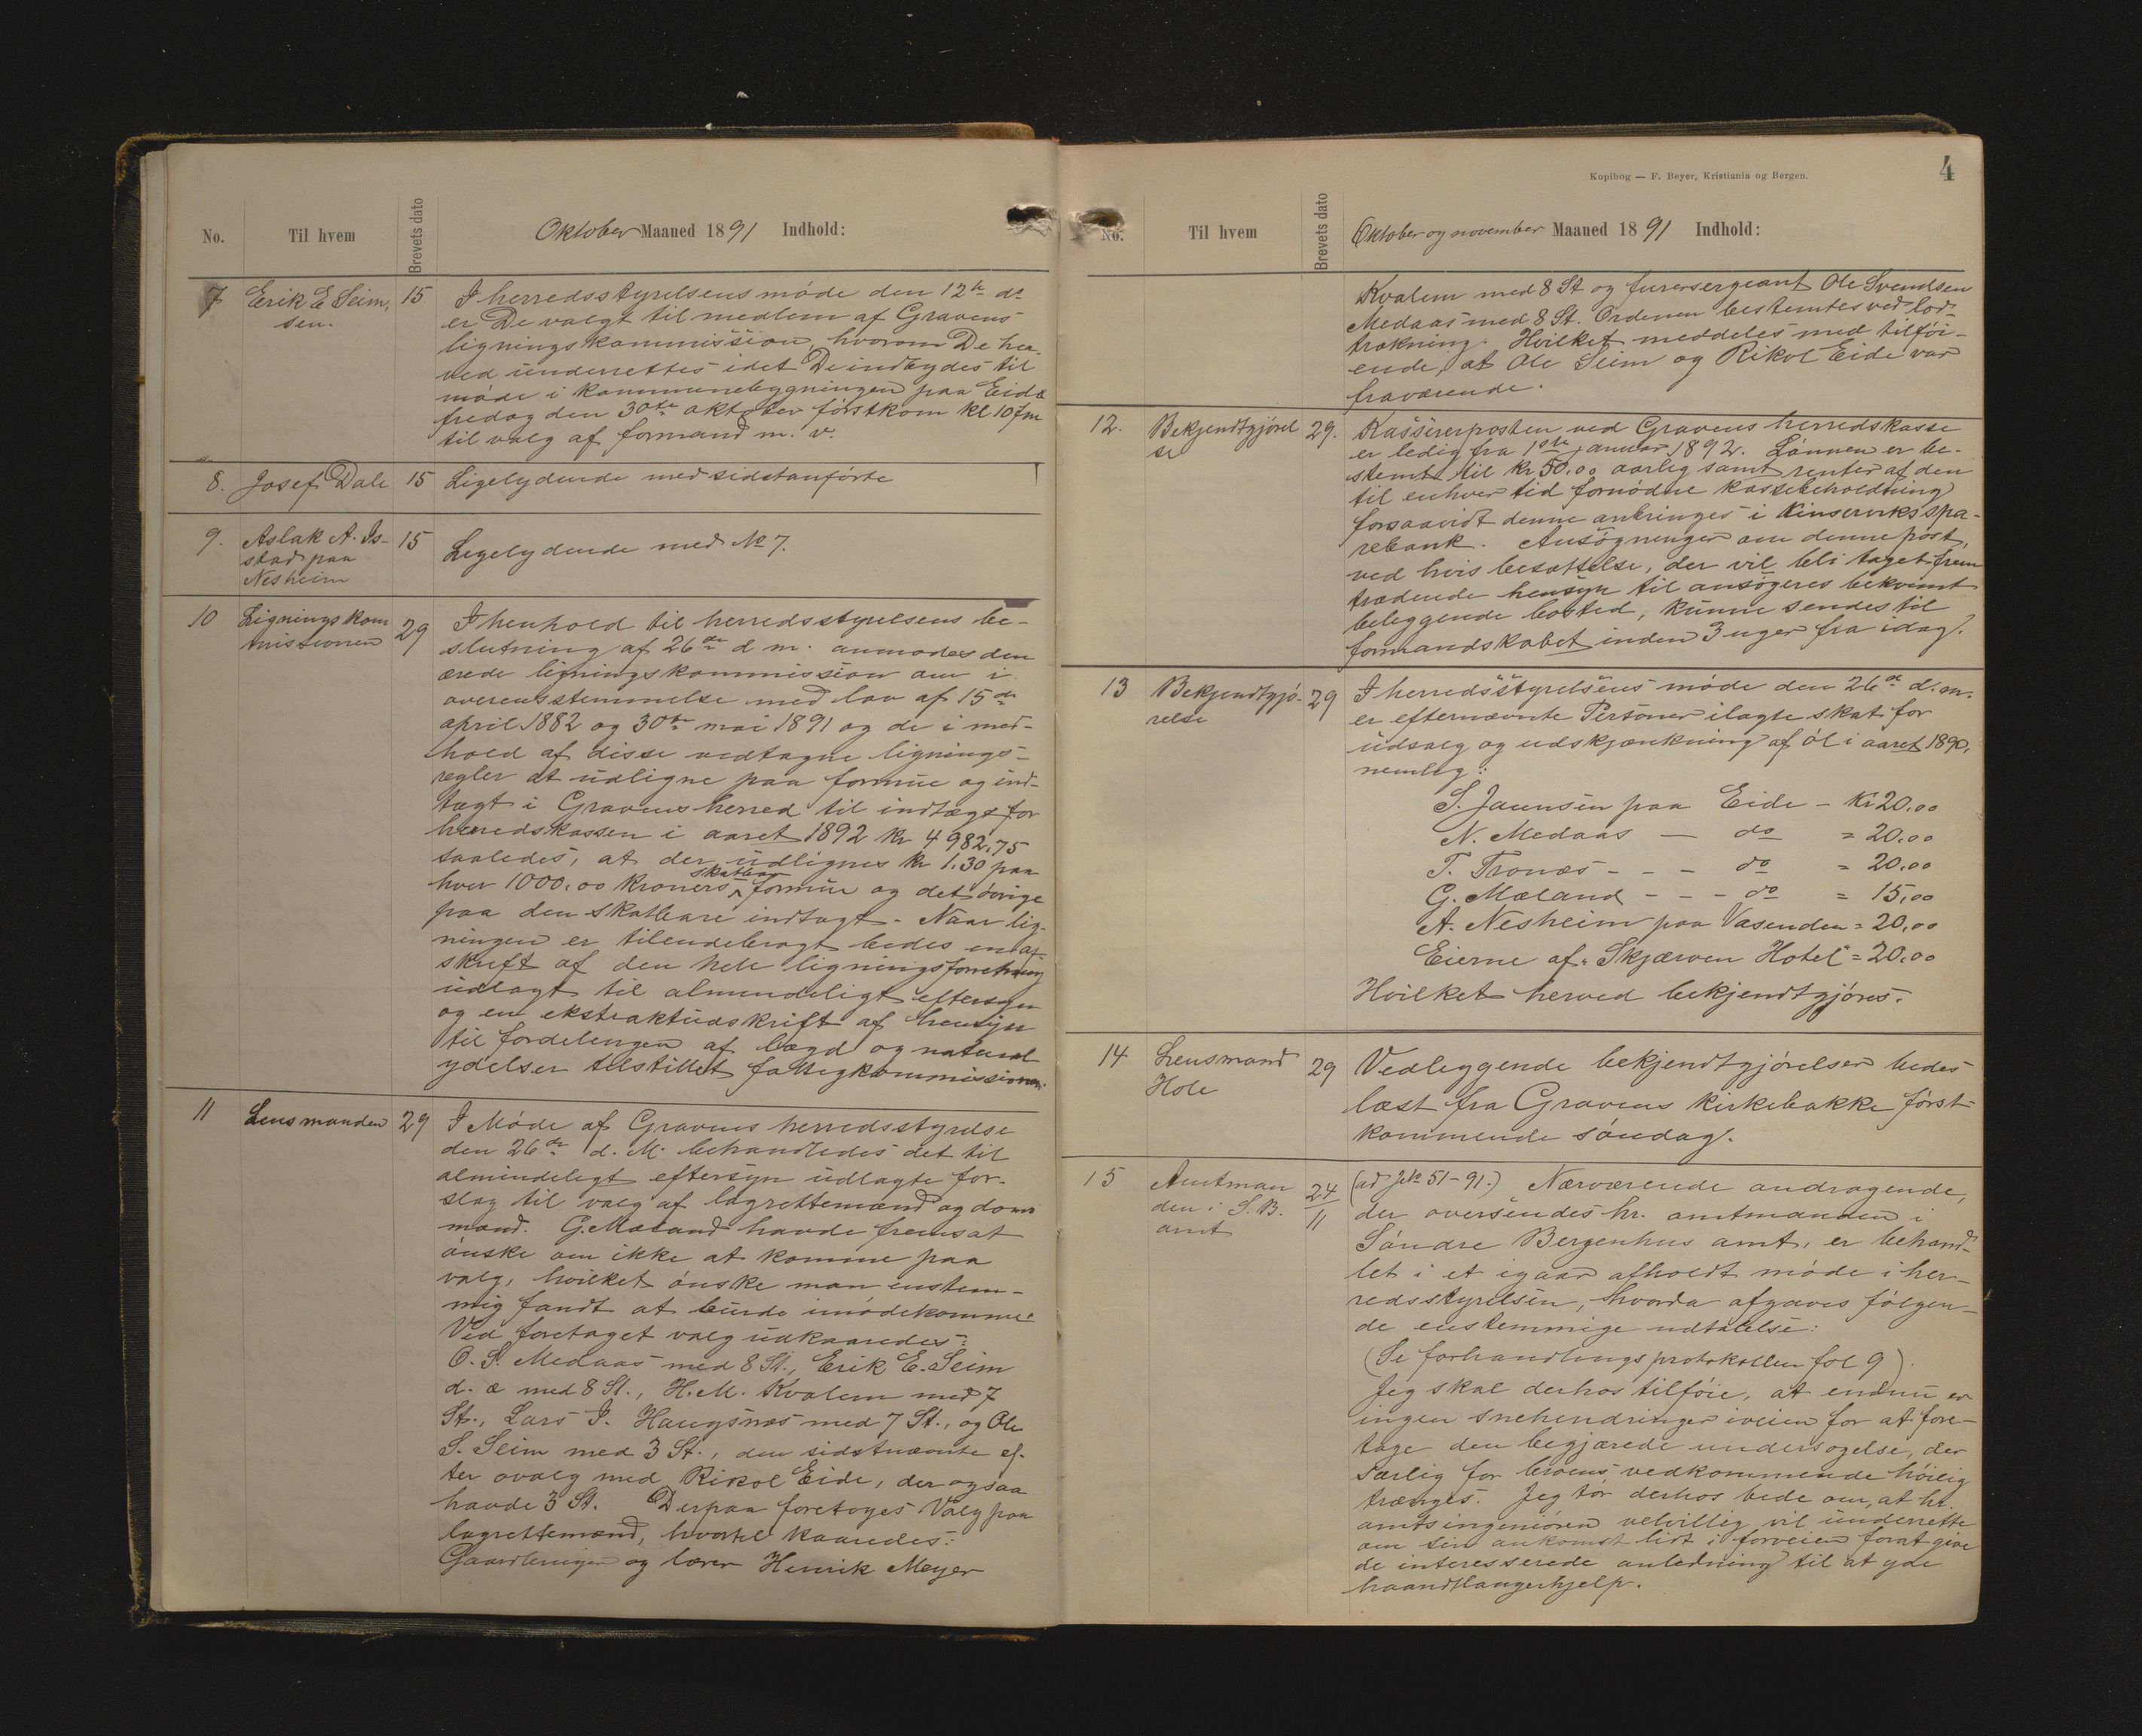 No.
Til hvem
Brevets dato
Oktober Maaned 1891 Indhold:
7
Erik E Seim,
sen.
15
I herredsstyrelsens møde den 12te ds
er De valgt til medlem af Gravens
ligningskommission, hvorom De her-
ved underrettes idet De indbydes til
møde i kommunebygningen paa Eide
fredag den 30te oktober førstkom kl 10 fm
til valg af formand m. v.
8.
Josef Dale
15
Ligelydende med sidstanførte
9.
Aslak A. Is-
stad paa
Nesheim
15
Ligelydende med No 7.
10
Ligningskom
missionen
29
I henhold til herredsstyrelsens be-
slutning af 26de d m. anmodes den
ærede ligningskommission om i
overensstemmelse med lov af 15de
april 1882 og 30te mai 1891 og de i med-
hold af disse vedtagne lignings-
regler at udligne paa formue og ind-
tægt i Gravens herred til indtægt for
herredskassen i aaret 1892 kr 4982,75
saaledes, at der udlignes kr 1.30 paa
hver 1000.00 kroners skatbar formue og det øvrige
paa den skatbare indtægt. Naar lig-
ningen er tilendebragt bedes en af-
skrift af den hele ligningsforretning
udlagt til almindeligt eftersyn
og en ekstraktudskrift af hensyn
til fordelingen af lægd og natural
ydelser tilstillet fattigkommissionen.
11
Lensmanden
29
I Møde af Gravens herredsstyrelse
den 26de d. M. behandledes det til
almindeligt eftersyn udlagte for-
slag til valg af lagrettemænd og doms
mænd. G. Mæland havde fremsat
ønske om ikke at komme paa
valg, hvilket ønske man enstem-
mig fandt at burde imødekomme.
Ved foretaget valg udkaaredes:
O. S. Medaas med 8 St., Erik E. Seim
d. æ med 8 St., H. M. Kvalem med 7
St., Lars I. Haugsnæs med 7 St., og Ole
S. Seim med 3 St., den sidstnævnte ef-
ter ovalg med Rikol Eide, der ogsaa
havde 3 St. Derpaa foretoges Valg paa
lagrettemænd, hvortil kaaredes:
Gaardbruger og lærer Henrik Meyer
4
Kopibog — F. Beyer, Kristiania og Bergen.
No.
Til hvem
Brevets dato
Oktober og november Maaned 1891 Indhold:
Kvalem med 8 St og furersergeant Ole Svendsen
Medaas med 8 St. Ordenen bestemtes ved lod-
trækning. Hvilket meddeles med tilføi-
ende, at Ole Seim og Rikol Eide var
fraværende.
12.
Bekjendtgjørel
se
29.
Kassererposten ved Gravens herredskasse
er ledig fra 1ste januar 1892. Lønnen er be-
stemt til kr 50,00 aarlig samt renter af den
til enhver tid fornødne kassebeholdning
forsaavidt denne anbringes i Kinserviks spa-
rebank. Ansøgninger om denne post,
ved hvis besættelse, der vil bli taget frem
trædende hensyn til ansøgeres bekvemt
beleggende bosted, kunne sendes til
formandskabet inden 3 uger fra idag.
13
Bekjendtgjø-
relse
29
I herredsstyrelsens møde den 26de d. m.
er efternævnte Personer ilagte skat for
udsalg og udskjænkning af øl i aaret 1890,
nemlig:
S. Jaunsen paa Eide - Kr 20,00
N. Medaas — do = 20,00
T. Tronæs - - - do = 20,00
G. Mæland - - - do = 15,00
A. Nesheim paa Vasenden = 20,00
Eierne af "Skjærven Hotel" = 20,00
Hvilket herved bekjendtgjøres.
14
Lensmand
Hole
29
Vedleggende bekjendtgjørelser bedes
læst fra Gravens kirkebakke først-
kommende søndag.
15
Amtman
den i S. B.
amt
24/11
(ad Jno 51-91.) Nærværende andragende,
der oversendes hr. amtmanden i
Søndre Bergenhus amt, er behand-
let i et igaar afholdt møde i her-
redsstyrelsen, hvorda afgaves følgen-
de enstemmige udtalelse:
(Se forhandlingsprotokollen fol 9).
Jeg skal derhos tilføie, at endnu er
ingen snehendringer iveien for at fore-
tage den begjærede undersøgelse, der
særlig for broens vedkommende høilig
trænges. Jeg tør derhos bede om, at hr.
amtsingeniøren velvillig vil underrette
om sin ankomst lidt i forveien forat give
de interesserede anledning til at yde
haandtlangerhjelp.